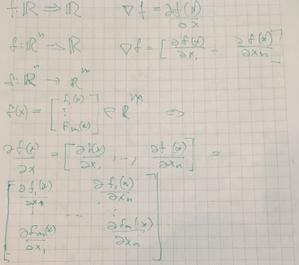 f: ℝ → ℝ ∇f = ∂f(x)/∂x
f: ℝⁿ → ℝ ∇f = [∂f(x)/∂x₁ ... ∂f(x)/∂xₙ]
f: ℝⁿ → ℝᵐ
f(x) = [f₁(x) ⋮ fₘ(x)] ∈ ℝᵐ ⇒
∂f(x)/∂x = [∂f(x)/∂x₁, ..., ∂f(x)/∂xₙ] =
[∂f₁(x)/∂x₁ ... ∂f₁(x)/∂xₙ
⋮ ... ⋮
∂fₘ(x)/∂x₁ ∂fₘ(x)/∂xₙ]